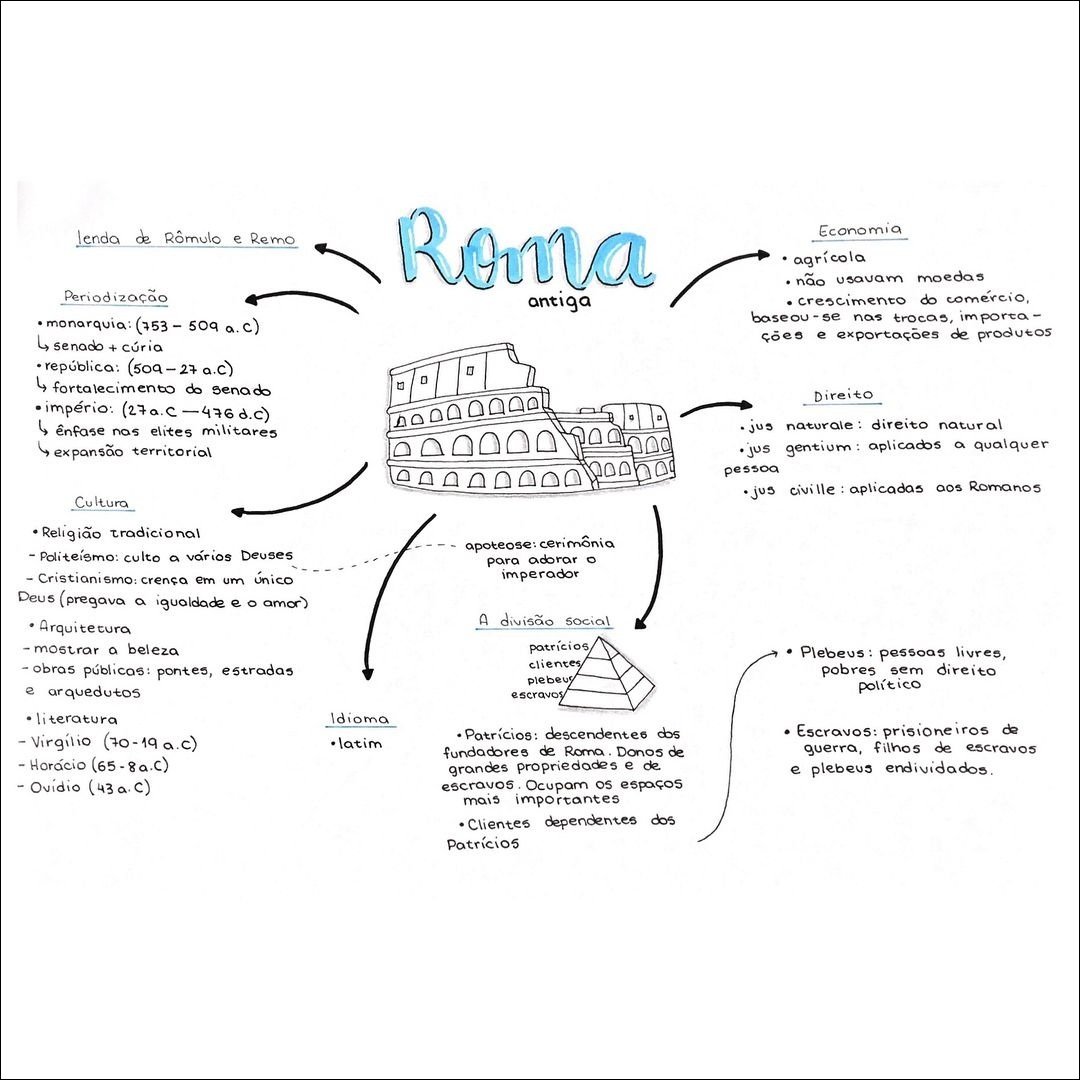 Roma
antiga
lenda de Rômulo e Remo
Periodização
•monarquia: (753 - 509 a.C)
↳ senado + cúria
•república: (509 - 27 a.C)
↳ fortalecimento do senado
•império: (27 a.C — 476 d.C)
↳ ênfase nas elites militares
↳ expansão territorial
Cultura
•Religião tradicional
- Politeísmo: culto a vários Deuses
- Cristianismo: crença em um único
Deus (pregava a igualdade e o amor)
•Arquitetura
- mostrar a beleza
- obras públicas: pontes, estradas
e arquedutos
•literatura
- Virgílio (70-19 a.C)
- Horácio (65-8 a.C)
- Ovídio (43 a.C)
apoteose: cerimônia
para adorar o
imperador
Idioma
•latim
A divisão social
patrícios
clientes
plebeus
escravos
•Patrícios: descendentes dos
fundadores de Roma. Donos de
grandes propriedades e de
escravos. Ocupam os espaços
mais importantes
•Clientes dependentes dos
Patrícios
• Plebeus: pessoas livres,
pobres sem direito
político
• Escravos: prisioneiros de
guerra, filhos de escravos
e plebeus endividados.
Economia
• agrícola
•não usavam moedas
•crescimento do comércio,
baseou-se nas trocas, importa-
ções e exportações de produtos
Direito
•jus naturale: direito natural
•jus gentium: aplicados a qualquer
pessoa
•jus civille: aplicadas aos Romanos